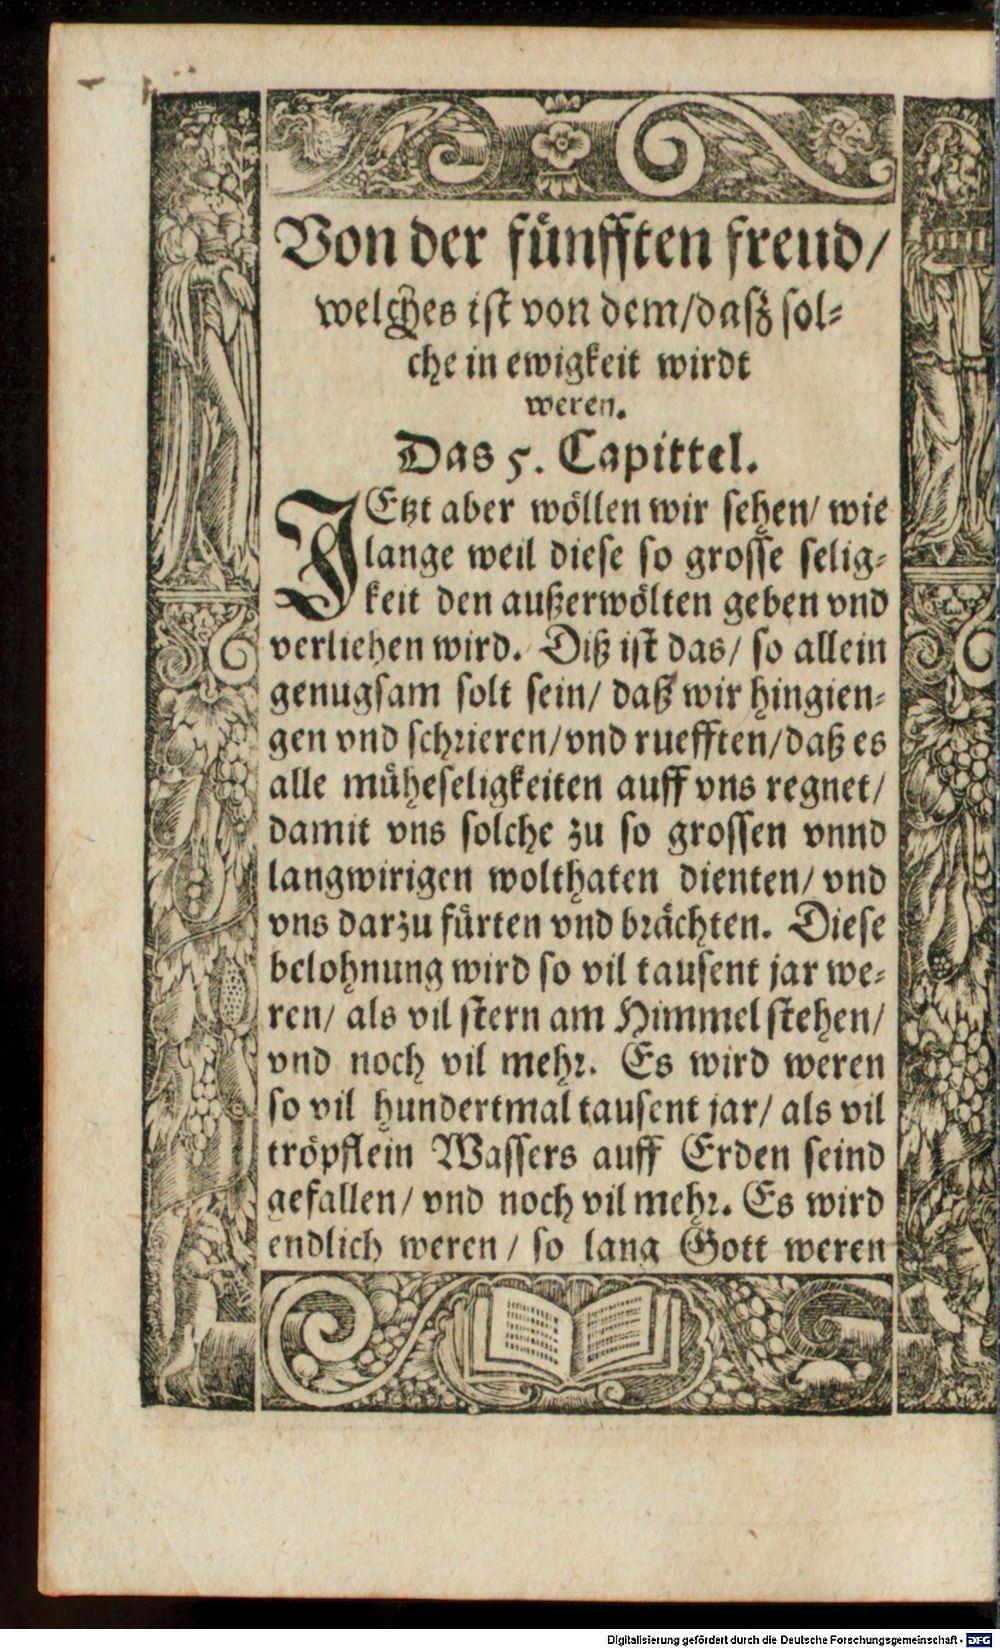 Von der fünfften freud/
welches ist von dem/dasz sol-
che in ewigkeit wirdt
weren.
Das 5. Capittel.
JEtzt aber wöllen wir sehen/ wie
lange weil diese so grosse selig-
keit den außerwölten geben vnd
verliehen wird. Diß ist das/ so allein
genugsam solt sein/ daß wir hingien-
gen vnd schrieren/vnd ruefften/daß es
alle müheseligkeiten auff vns regnet/
damit vns solche zu so grossen vnnd
langwirigen wolthaten dienten/ vnd
vns darzu fürten vnd brächten. Diese
belohnung wird so vil tausent jar we-
ren/ als vil stern am Himmel stehen/
vnd noch vil mehr. Es wird weren
so vil hundertmal tausent jar/ als vil
tröpflein Wassers auff Erden seind
gefallen/ vnd noch vil mehr. Es wird
endlich weren / so lang Gott weren
Digitalisierung gefördert durch die Deutsche Forschungsgemeinschaft - DFG